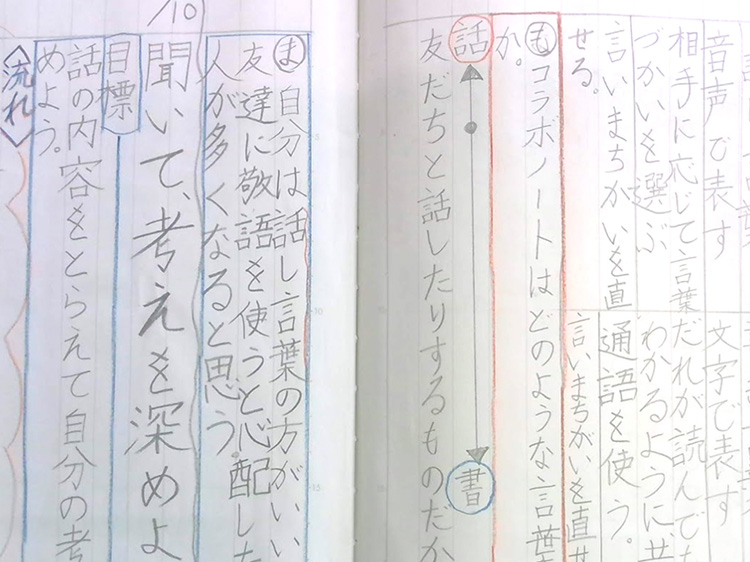 音声で表す
相手に応じて言葉
づかいを選ぶ
言いまちがいを直
せる。
文字で表す
だれが読んでも
わかるように、共
通語を使う。
言いまちがいを直せ
も コラボノートはどのような言葉
か。
話 書
友だちと話したりするものだか
ま 自分は話し言葉の方がいい
友達に敬語を使うと心配した
人が多くなると思う
/10
聞いて、考えを深めよ
目標
話の内容をとらえて自分の考
めよう。
〈流れ〉